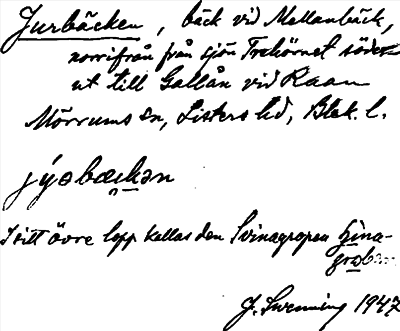 Jurbäcken, bäck vid Mellanbäck,
norrifrån från sjön Trehörnet söder
ut till Gallån vid Raan
Mörrums sn, Listers hd, Blek. l.
I sitt övre lopp kallas den Svinagropen
J. Swenning 1947